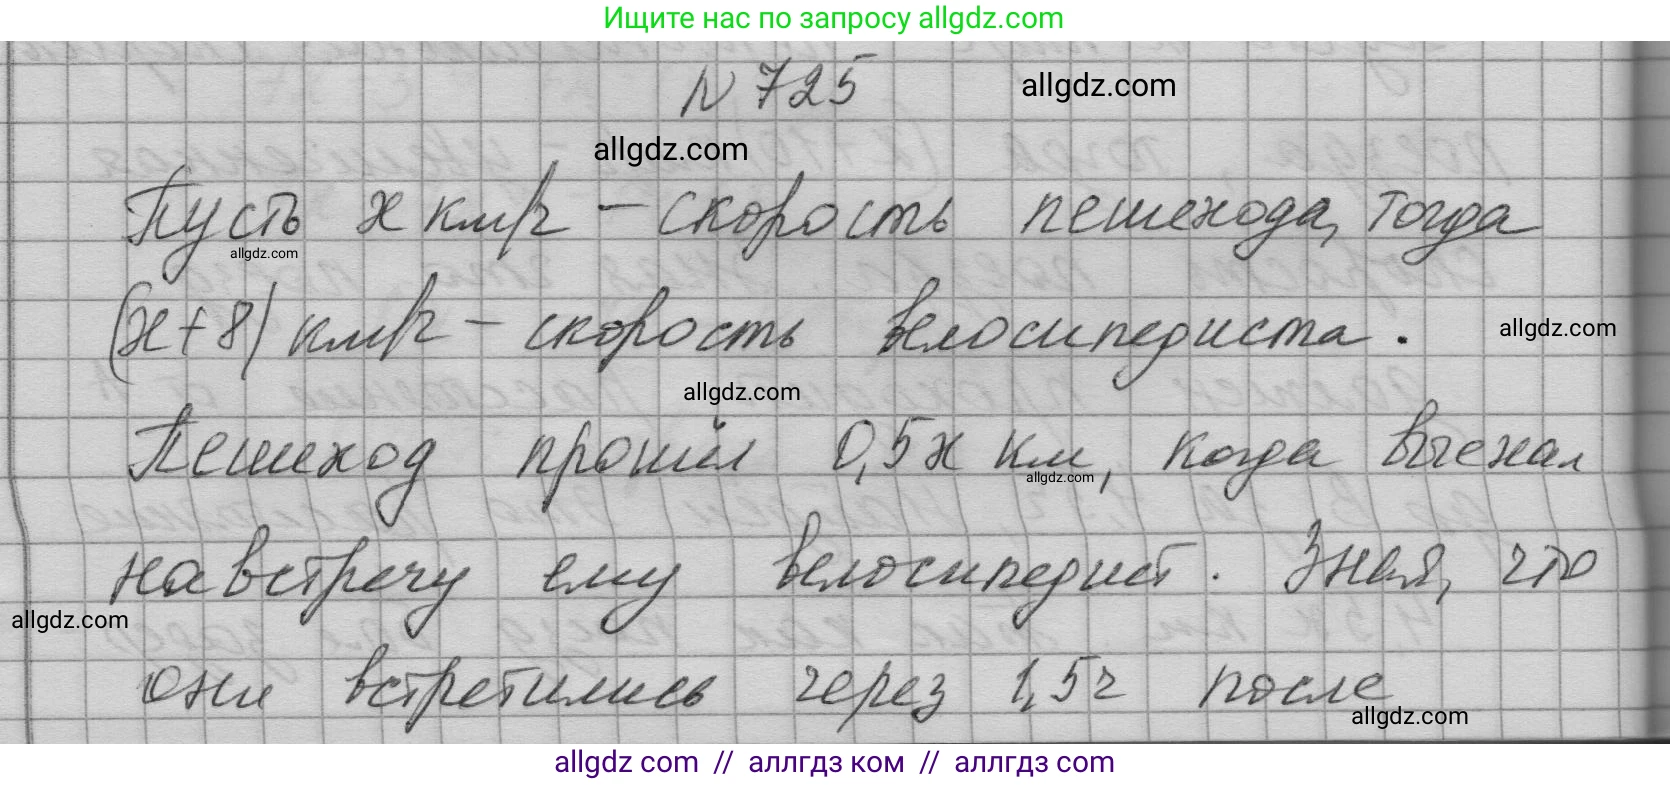 Ищите нас по запросу allgdz.com
N 725
allgdz.com
allgdz.com
Пусть х км/ч – скорость пешехода, тогда
allgdz.com
(х+8) км/ч – скорость велосипедиста.
allgdz.com
allgdz.com
Пешеход прошёл 0,5х км, когда выехал
allgdz.com
навстречу ему велосипедист. Зная, что
allgdz.com
они встретились через 1,5ч после
allgdz.com
allgdz com // аллгдз ком // аллгдз com